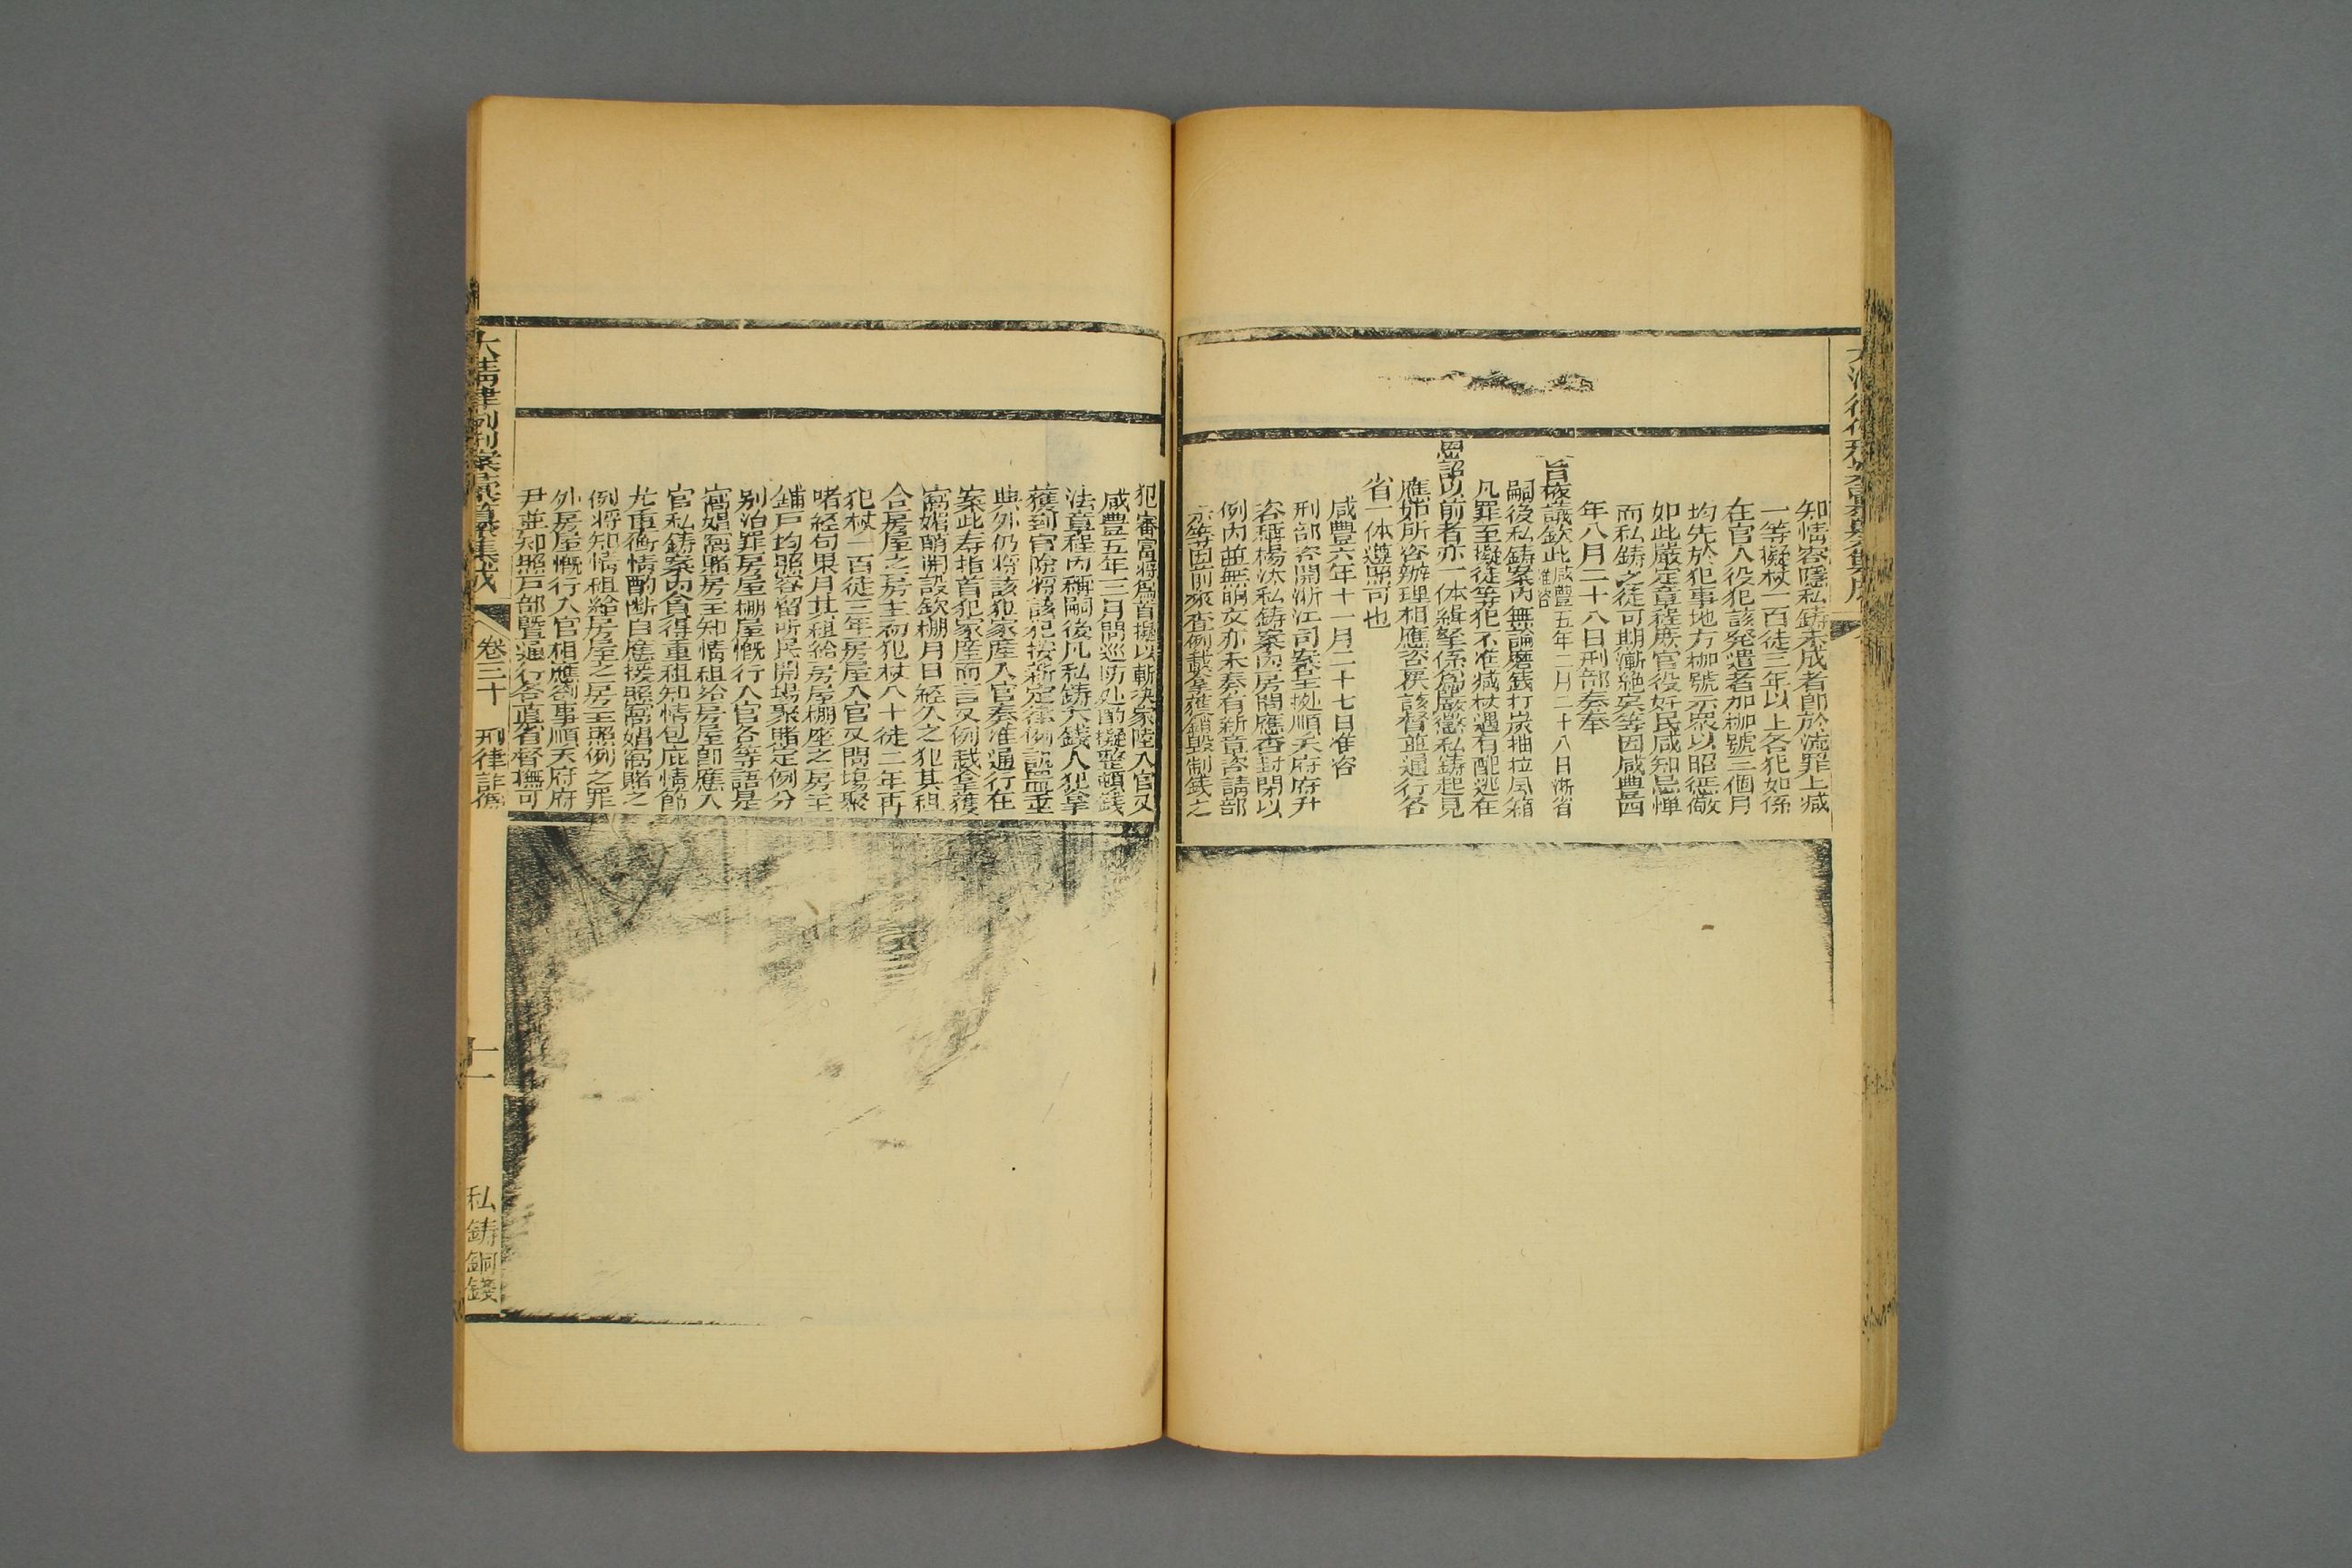 知情容隱私鋳未成者卽於流罪上减
一等擬杖一百徒三年以上各犯如係
在官人役犯該発遣者加枷號三個月
均先於犯事地方枷號示衆以昭懲儆
如此嚴定章程庶官役奸民咸知忌憚
而私鋳之徒可期漸絶矣等因咸豊四
年八月二十八日刑部奏奉
旨依議欽此咸豐五年二月二十八日浙省准咨
嗣後私鋳案内無論磨銭打炭抽拉風箱
凡罪至擬徒等犯不准减杖遇有配逃在
恩詔以前者亦一体緝拏係爲嚴懲私鋳起見
應如所咨辦理相應咨覆該督並通行各
省一体遵照可也
咸豐六年十一月二十七日准咨
刑部咨開浙江司案呈拠順天府府尹
咨稱楊沐私鋳案内房間應否封閉以
例内並無明文亦未奏有新章咨請部
示等因前來查例載拿獲銷毀制銭之
犯審實將爲首擬以斬决家産入官又
咸豊五年三月間巡防处酌擬整頓銭
法章程内稱嗣後凡私鋳大錢人犯拏
獲到官除將該犯按新定律例
典外仍將該犯家産入官奏准通行在
案此專指首犯家産而言又例載拿獲
窩娼
合房屋之房主初犯杖八十徒二年再
犯杖一百徒三年房屋入官又開塲聚
啫経旬累月其租給房屋棚座之房主
鋪戸均照容留所民開場聚賭定例分
别治罪房屋棚屋慨行入官各等語是
窩娼窩賭房主知情租給房屋卽應入
官私鋳案内貪得重租知情包庇情節
尤重衡情酌断自應援照窩娼窩賭之
例將知情租給房屋之房主照例之罪
外房屋慨行入官相應劄事順天府府
尹並知照戸部暨通行各直省督撫可
大清律例刑案彙纂集成
卷三十 刑律詐僞
十一
私鋳銅錢